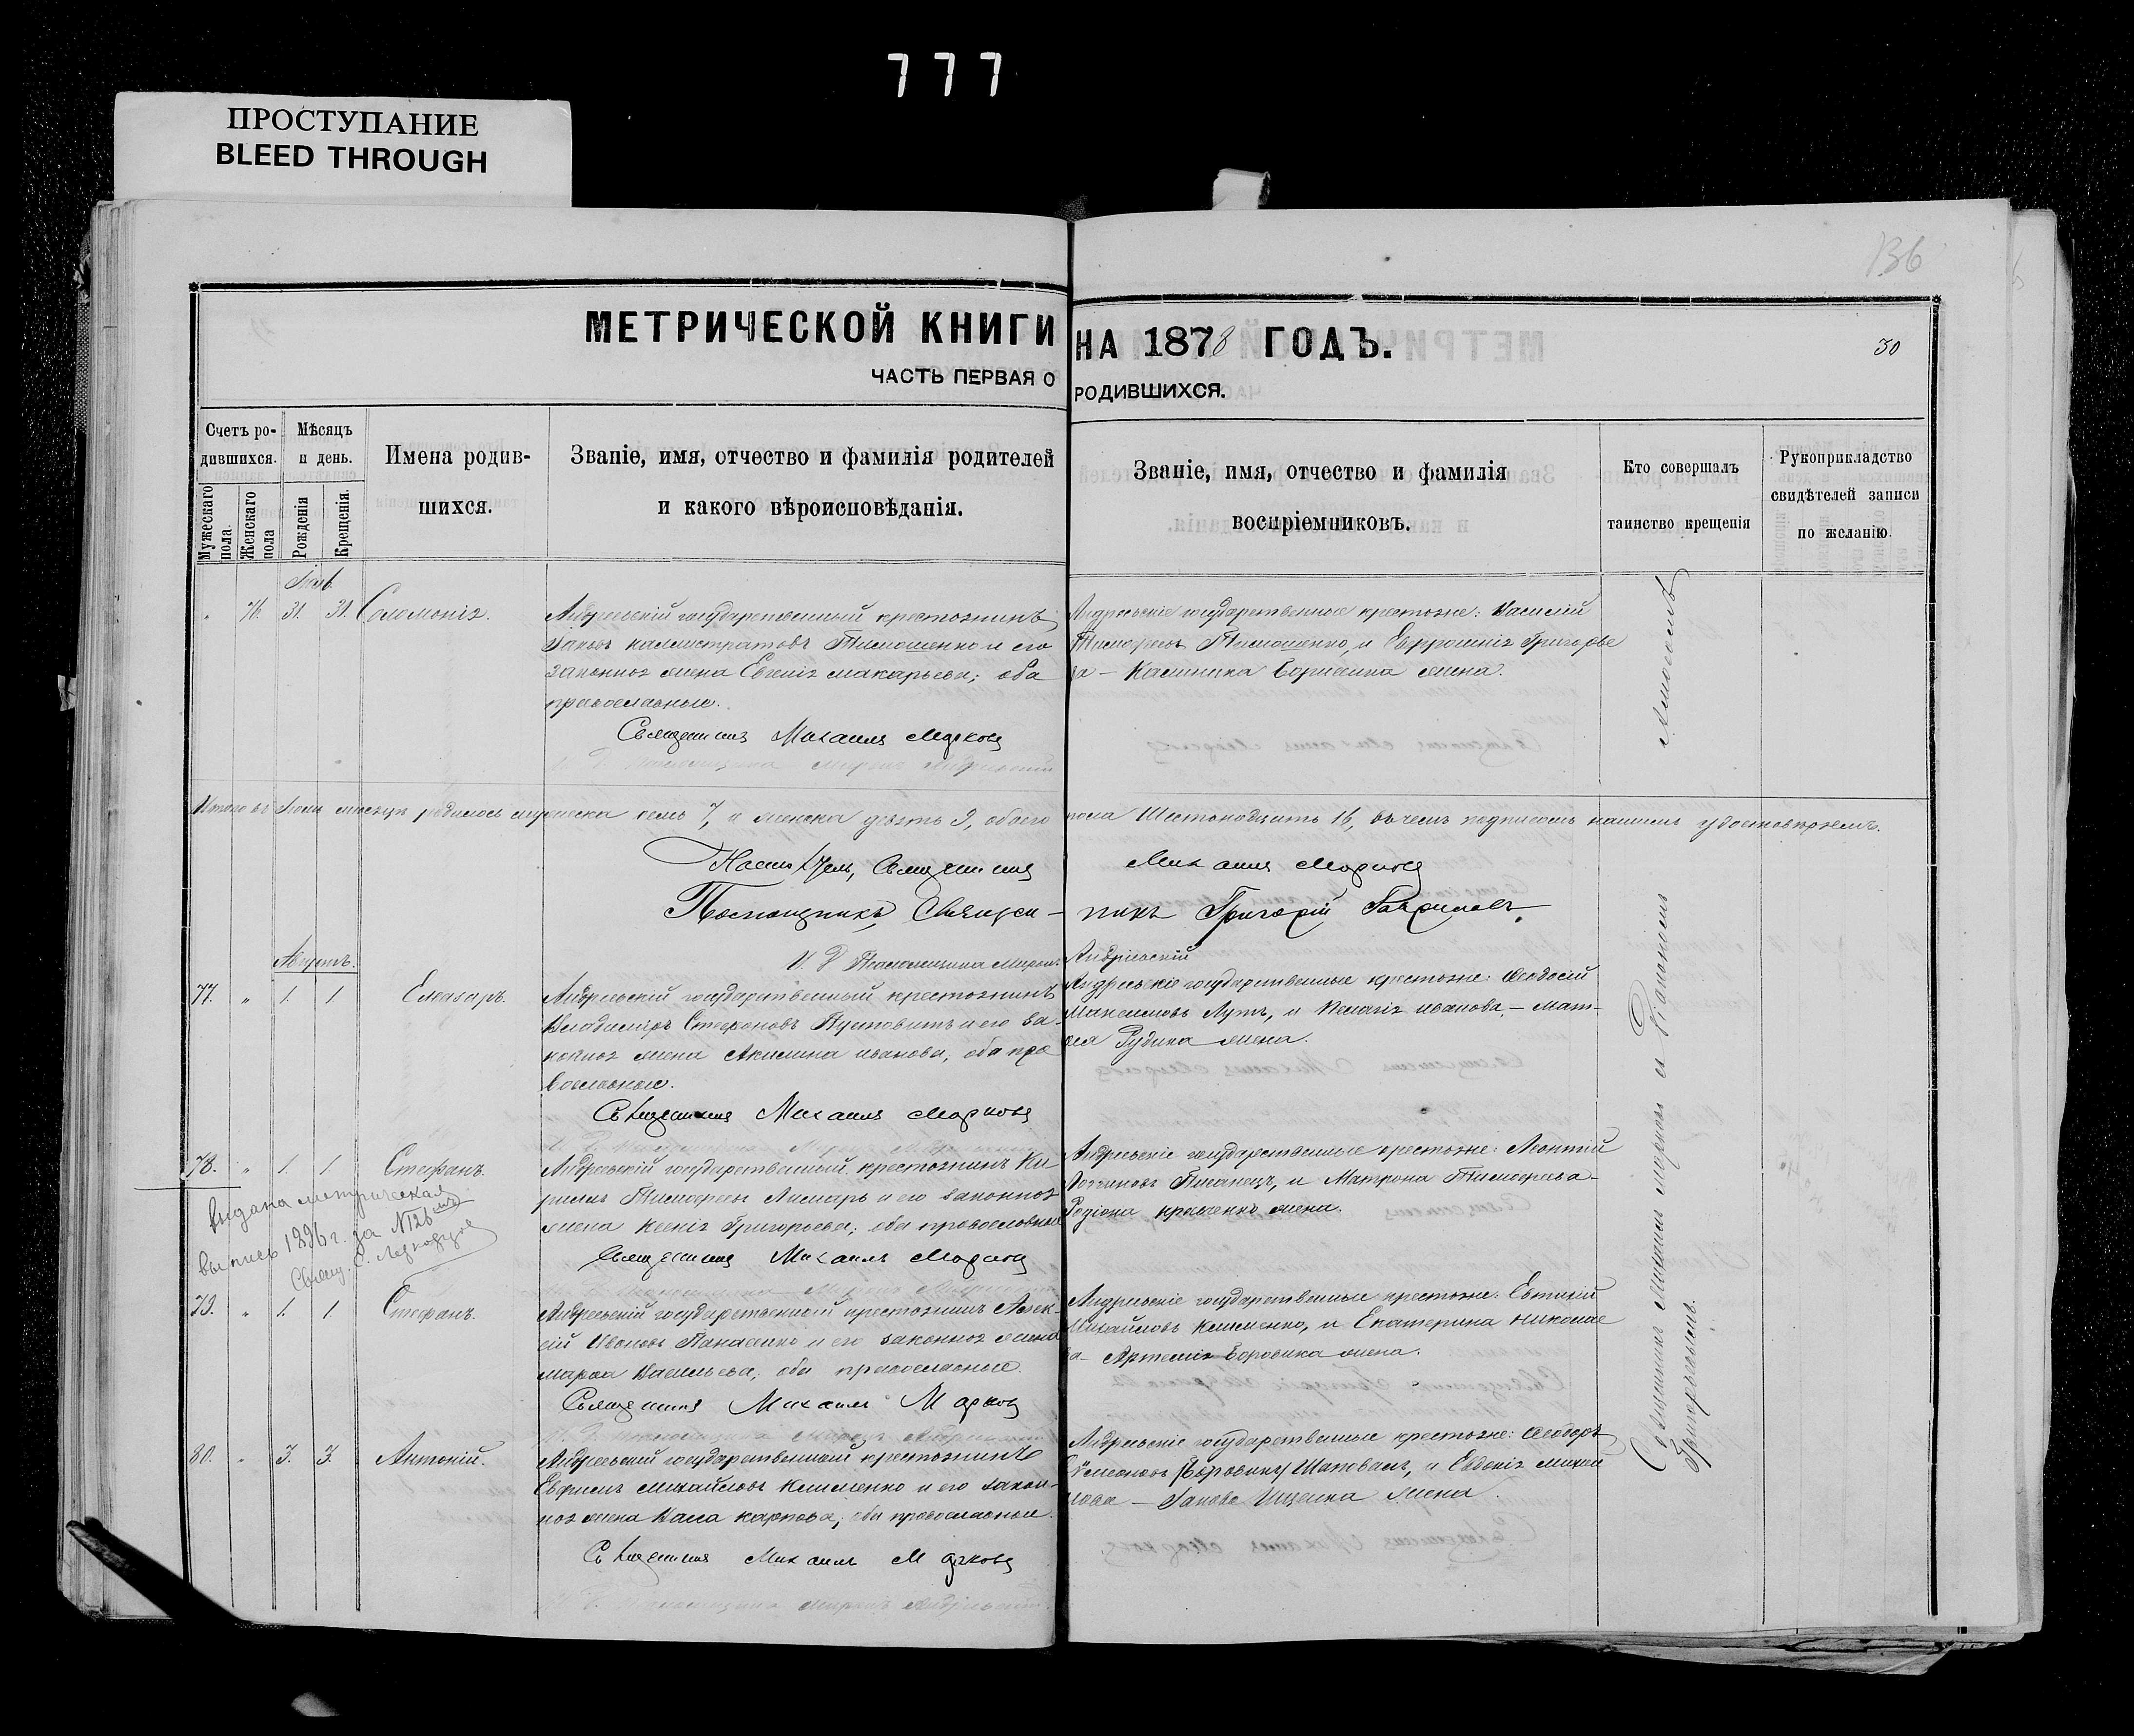 777
ПРОСТУПАНИЕ
BLEED THROUGH
136
МЕТРИЧЕСКОЙ КНИГИ НА 1878 ГОДЪ.
30
ЧАСТЬ ПЕРВАЯ О РОДИВШИХСЯ.
Счетъ ро-
дившихся.
Мужескаго пола.
Женскаго пола
Мѣсяцъ
и день.
Рожденія
Крещенія.
Имена родив-
шихся.
Званіе, имя, отчество и фамилія родителей
и какого вѣроисповѣданія.
Званіе, имя, отчество и фамилія
воспріемниковъ.
Кто совершалъ
таинство крещенія
Рукоприкладство
свидѣтелей записи
по желанію.
76. 31. 31. Соломонія.
Андреевскій государственный крестьянинъ
Іаковъ Каллистратовъ Тимошенко и его
законная жена Евгенія Макарьева; оба
православные.
Священникъ Михаилъ Марковъ
Андреевскіе государственные крестьяне: Василій
Тимофеевъ Тимошенко, и Евфросинія Григорье
ва - жена.
Итого въ Іюлѣ месяцѣ родилось мужеска семь 7, а женска девять 9, обоего пола Шестьнадцать 16, въ чемъ подписомъ нашимъ удостовѣряемъ.
Настоятель, Священникъ Михаилъ Марковъ
Помощникъ, Священникъ Григорій Гавриловъ.
И. Д. Псаломщика Миронъ Андріевскій
Августъ.
77. " 1. 1 Елеазаръ.
Андреевскій государственный крестьянинъ
Владиміръ Стефановъ Пустовитъ и его за-
конная жена Акилина Иванова; оба пра
вославные.
Священникъ Михаилъ Марковъ
Андреевскіе государственные крестьяне: Феодосій
Максимовъ Лутъ, и Пелагія Иванова, - Мат-
фея Рудика жена.
78. " 1. 1 Стефанъ.
Андреевскій государственный крестьянинъ Ки
риллъ Тимофеевъ Лимарь и его законная
жена Ксенія Григорьева; оба православные
Священникъ Михаилъ Марковъ
Андреевскіе государственные крестьяне: Леонтій
Писанецъ, и Матрона Тимофеева -
жена.
Выдана метрическая
выпись 1896 г. за № 126
Свящ. С.
79. " 1. 1 Стефанъ.
Андреевскій государственный крестьянинъ Алек-
сій Ивановъ Панасенко и его законная жена
Марѳа Васильева; оба православные.
Священникъ Михаилъ Марковъ
Андреевскіе государственные крестьяне: Евтихій
Михайловъ Клименко, и Екатерина Николае
ва - Артемія Боровика жена.
80. " 3. 3. Антоній.
Андреевскій государственный крестьянинъ
Евфимъ Михайловъ Клименко и его закон-
ная жена Васса Карпова; оба православные.
Священникъ Михаилъ Марковъ
Андреевскіе государственные крестьяне: Феодоръ
Симеоновъ (Боровикъ) Шаповалъ, и Евдокія Михаи
лова - Іакова Ищенка жена.
Священникъ Михаилъ Марковъ съ Діакономъ